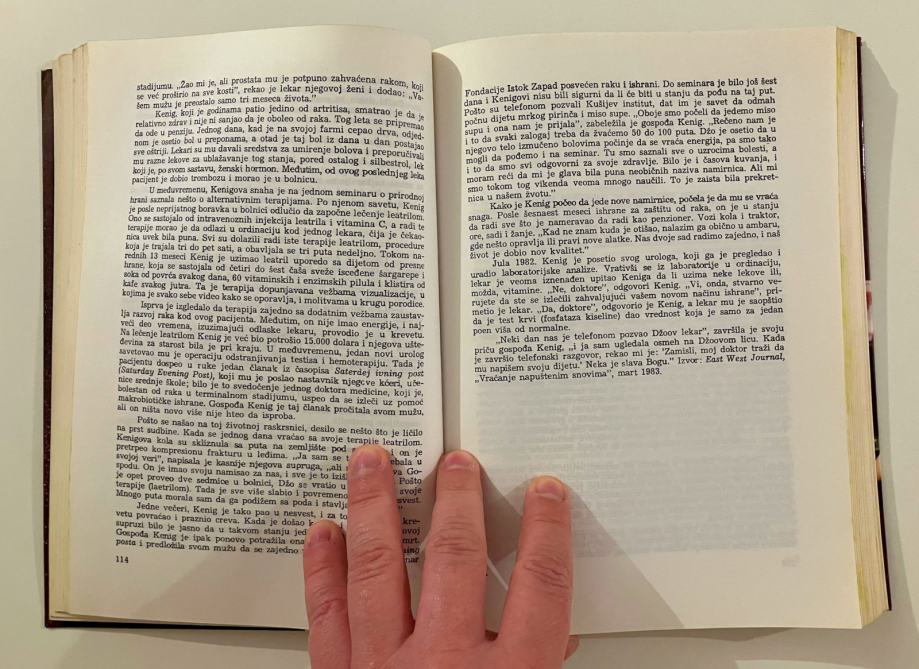 stadijumu. „Žao mi je, ali prostata mu je potpuno zahvaćena rakom, koji
se već proširio na sve kosti”, rekao je lekar njegovoj ženi i dodao: „Va-
šem mužu je preostalo samo tri meseca života.”
Kenig, koji je godinama patio jedino od artritisa, smatrao je da je
relativno zdrav i nije ni sanjao da je oboleo od raka. Tog leta se pripremao
da ode u penziju. Jednog dana, kad je na svojoj farmi cepao drva, odjed-
nom je osetio bol u preponama, a otad je taj bol iz dana u dan postajao
sve oštriji. Lekari su mu davali sredstva za umirenje bolova i preporučivali
mu razne lekove za ublažavanje tog stanja, pored ostalog i silbestrol, lek
koji je, po svom sastavu, ženski hormon. Međutim, od ovog poslednjeg leka
pacijent je dobio trombozu i morao je u bolnicu.
U međuvremenu, Kenigova snaha je na jednom seminaru o prirodnoj
hrani saznala nešto o alternativnim terapijama. Po njenom savetu, Kenig
je posle neprijatnog boravka u bolnici odlučio da započne lečenje leatrilom.
Ono se sastojalo od intravenoznih injekcija leatrila i vitamina C, a radi te
terapije morao je da odlazi u ordinaciju kod jednog lekara, čija je čekao-
nica uvek bila puna. Svi su dolazili radi iste terapije leatrilom, procedure
koja je trajala tri do pet sati, a obavljala se tri puta nedeljno. Tokom na-
rednih 13 meseci Kenig je uzimao leatril uporedo sa dijetom od presne
hrane, koja se sastojala od četiri do šest čaša sveže isceđene šargarepe i
soka od povrća svakog dana, 60 vitaminskih i enzimskih pilula i klistira od
kafe svakog jutra. Ta je terapija dopunjavana vežbama vizualizacije, u
kojima je svako sebe video kako se oporavlja, i molitvama u krugu porodice.
Isprva je izgledalo da terapija zajedno sa dodatnim vežbama zaustav-
lja razvoj raka kod ovog pacijenta. Međutim, on nije imao energije, i naj-
veći deo vremena, izuzimajući odlaske lekaru, provodio je u krevetu.
Na lečenje leatrilom Kenig je već bio potrošio 15.000 dolara i njegova ušte-
đevina za starost bila je pri kraju. U međuvremenu, jedan novi urolog
savetovao mu je operaciju odstranjivanja testisa i hemoterapiju. Tada je
pacijentu dospeo u ruke jedan članak iz časopisa Saterdej ivning post
(Saturday Evening Post), koji mu je poslao nastavnik njegove kćeri, uče-
nice srednje škole; bilo je to svedočenje jednog doktora medicine, koji je,
bolestan od raka u terminalnom stadijumu, uspeo da se izleči uz pomoć
makrobiotičke ishrane. Gospođa Kenig je taj članak pročitala svom mužu,
ali on ništa novo više nije hteo da isproba.
Pošto se našao na toj životnoj raskrsnici, desilo se nešto što je ličilo
na prst sudbine. Kada se jednog dana vraćao sa svoje terapije leatrilom.
Kenigova kola su skliznula sa puta na zemljište pod i on je
pretrpeo kompresionu frakturu u leđima. „Ja sam se ebala u
svojoj veri”, napisala je kasnije njegova supruga, „ali va Go-
spodu. On je imao svoju namisao za nas, i sve je to Pošto
je opet proveo dve sedmice u bolnici, Džo se vratio u svoje
terapije (laetrilom). Tada je sve više slabio i povremeno svest.
Mnogo puta morala sam da ga podižem sa poda i stavlj
Jedne večeri, Kenig je tako pao u nesvest, i za to kre-
vetu povraćao i praznio creva. Kada je došao k ovoj
supruzi bilo je jasno da u takvom stanju jed mrt.
Gospođa Kenig je ipak ponovo potražila ona ning
posta i predložila svom mužu da se zajedno nar
114
Fondacije Istok Zapad posvećen raku i ishrani. Do seminara je bilo još šest
dana i Kenigovi nisu bili sigurni da li će biti u stanju da pođu na taj put.
Pošto su telefonom pozvali Kušijev institut, dat im je savet da odmah
počnu dijetu mrkog pirinča i miso supe. „Oboje smo počeli da jedemo miso
supu i ona nam je prijala”, zabeležila je gospođa Kenig. „Rečeno nam je
i to da svaki zalogaj treba da žvaćemo 50 do 100 puta. Džo je osetio da u
njegovo telo izmučeno bolovima počinje da se vraća energija, pa smo tako
mogli da pođemo i na seminar. Tu smo saznali sve o uzrocima bolesti, a
i to da smo svi odgovorni za svoje zdravlje. Bilo je i časova kuvanja, i
moram reći da mi je glava bila puna neobičnih naziva namirnica. Ali mi
smo tokom tog vikenda veoma mnogo naučili. To je zaista bila prekret-
nica u našem životu.”
Kako je Kenig počeo da jede nove namirnice, počela je da mu se vraća
snaga. Posle šesnaest meseci ishrane za zaštitu od raka, on je u stanju
da radi sve što je nameravao da radi kao penzioner. Vozi kola i traktor,
ore, sadi i žanje. „Kad ne znam kuda je otišao, nalazim ga obično u ambaru,
gde nešto opravlja ili pravi nove alatke. Nas dvoje sad radimo zajedno, i naš
život je dobio nov kvalitet.”
Jula 1982. Kenig je posetio svog urologa, koji ga je pregledao i
uradio laboratorijske analize. Vrativši se iz laboratorije u ordinaciju,
lekar je veoma iznenađen upitao Keniga da li uzima neke lekove ili,
možda, vitamine. „Ne, doktore”, odgovori Kenig. „Vi, onda, stvarno ve-
rujete da ste se izlečili zahvaljujući vašem novom načinu ishrane”, pri-
metio je lekar. „Da, doktore”, odgovorio je Kenig, a lekar mu je saopštio
da je test krvi (fosfataza kiseline) dao vrednost koja je samo za jedan
poen viša od normalne.
„Neki dan nas je telefonom pozvao Džoov lekar”, završila je svoju
priču gospođa Kenig, „i ja sam ugledala osmeh na Džoovom licu. Kada
je završio telefonski razgovor, rekao mi je: 'Zamisli, moj doktor traži da
mu napišem svoju dijetu.' Neka je slava Bogu.” Izvor: East West Journal,
„Vraćanje napuštenim snovima”, mart 1983.